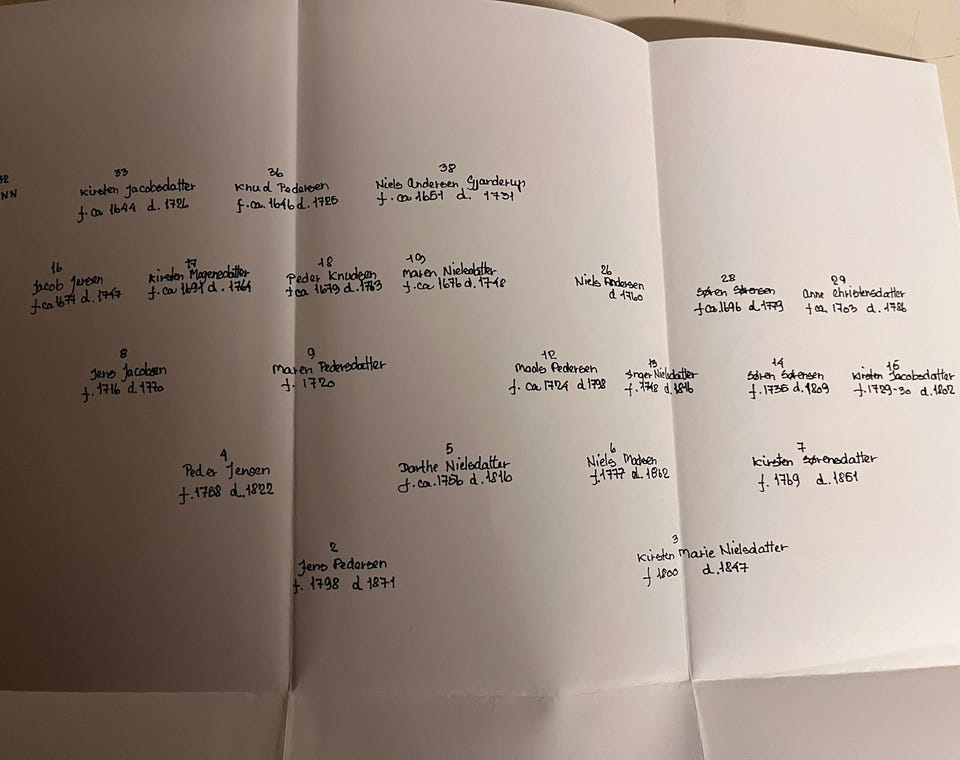 32
NN
33
Kirsten Jacobsdatter
f. ca 1644 d. 1726
36
Knud Pedersen
f. ca. 1646 d. 1725
38
Niels Andersen Gjanderup
f. ca 1651 d. 1731
16
Jacob Jensen
f ca 1677 d. 1747
17
Kirsten Mogensdatter
f. ca 1691 d. 1764
18
Peder Knudsen
f ca 1679 d. 1763
19
Maren Nielsdatter
f. ca 1676 d. 1748
26
Niels Andersen
d 1760
28
Søren Sørensen
f ca. 1696 d 1779
29
Anne Christensdatter
f ca. 1703 d. 1786
8
Jens Jacobsen
f. 1716 d. 1770
9
Maren Pedersdatter
f. 1720
12
Mads Pedersen
f. ca 1724 d. 1798
13
Inger Nielsdatter
f. 1748 d. 1816
14
Søren Sørensen
f. 1736 d. 1809
15
Kirsten Jacobsdatter
f. 1729-30 d. 1802
4
Peder Jensen
f. 1758 d. 1822
5
Dorthe Nielsdatter
f. ca. 1756 d. 1816
6
Niels Madsen
f. 1777 d. 1862
7
Kirsten Sørensdatter
f. 1769 d. 1851
2
Jens Pedersen
f. 1798 d 1871
3
Kirsten Marie Nielsdatter
f 1800 d. 1847